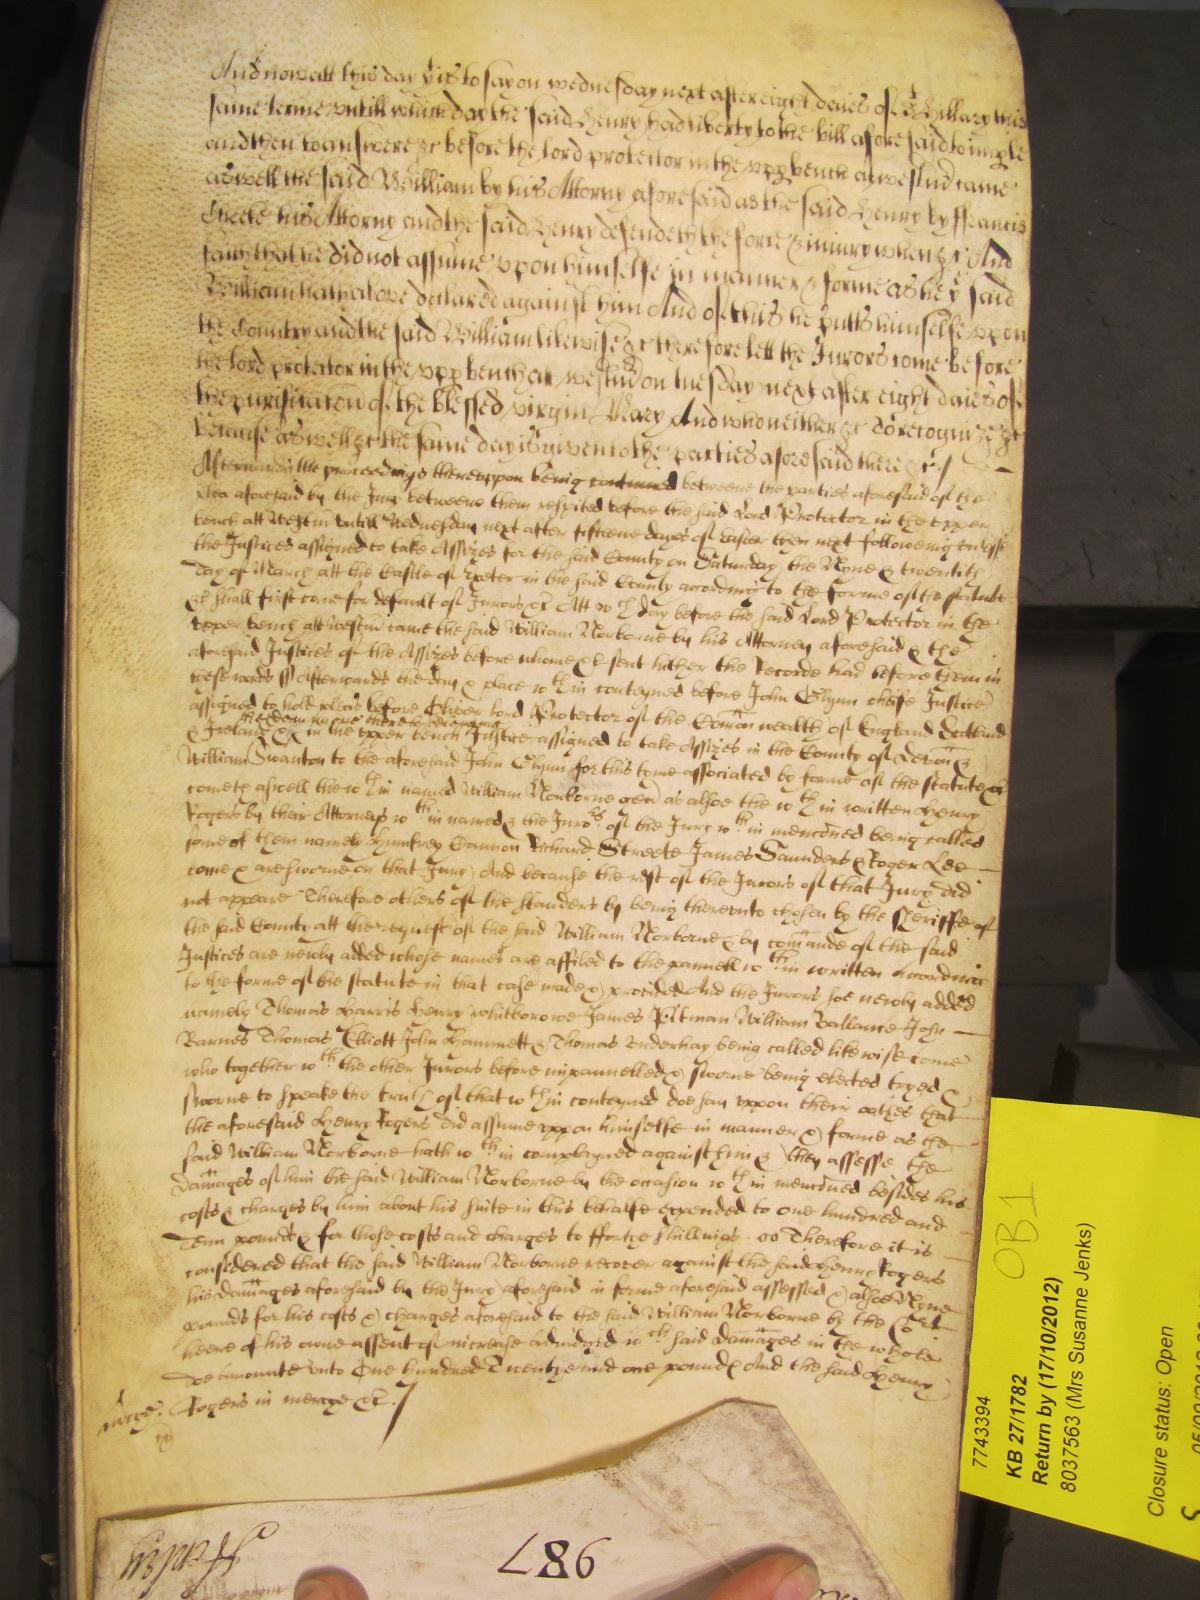 And now att this day yt is to say on wednesday next after eight daies of St Hillary this
same terme untill which day the said Henry had liberty to the bill aforesaid to imple
and then to answere &c before the lord protector in the upp bench at westmr came
aswell the said William by his Attorny aforesaid as the said Henry by ffrancis
his Attorny and the said Henry defendeth the force & iniury when &c And
saith that he did not assume uppon himselfe in manner & forme as he ye said
William hath above declared against him And of this he putts himselfe uppon
the Country and the said William likewise &c therefore lett the Jurors come before
the lord protector in the upp bench att westmr on tuesday next after eight daies of
the purificacon of the blessed virgin Mary And who neither &c to recognize &c
because aswell &c the same day is given to the parties aforesaid there &c /
Afterwards the proceedings thereuppon being continued betweene the parties aforesaid of the
plea aforesaid by the Jury betweene them respited before the said Lord Protector in the upper
bench att Westm untill Wednesday next after fifteene dayes of Easter then next followeing unlesse
the Justices assigned to take Assizes for the said County on Saturday the Nyne & twentith
day of March att the Castle of Exeter in the said County according to the forme of the statute
&c shall first come for default of Jurors &c Att wch day before the said Lord Protector in the
upper bench att Westmr came the said William Norborne by his Attorney aforesaid & the
aforesaid Justices of the Assizes before whome &c sent hither the Recorde had before them in
these words ss Afterwards the day & place wthin conteyned before John Glynn cheife Justice
assigned to hold pleas before Oliver lord Protector of the Comon wealth of England Scotland
& Ireland &c the dominions thereto belonging in the upper bench Justice assigned to take Assizes in the County of Devon &
William Swanton to the aforesaid John Glynn for this tyme associated by forme of the statute &c
cometh aswell the wthin named William Norborne gen as alsoe the wthin written Henry
Rogers by their Attorneys wthin named & the Jurors of the Jury wthin menconed being called
some of them namely Humfrey Cannon Richard Streete James Saunders & Roger Lee
come & are sworne on that Jury And because the rest of the Jurors of that Jury did
not appeare Therefore others of the standers by being thereunto chosen by the Sheriffe of
the said County att the request of the said William Norborne & by comande of the said
Justices are newly added whose names are affiled to the pannell wthin written according
to the forme of the statute in that case made & provided And the Jurors soe newly added
namely Thomas Harris Henry Whitborowe James Pitman William Vallance John
Barnes Thomas Elliott John Hammett & Thomas Underhay being called likewise come
who together wth the other Jurors before impannelled & sworne being elected tryed &
sworne to speake the truth of that wthin conteyned doe say uppon their oathes that
the aforesaid Henry Rogers did assume uppon himselfe in manner & forme as the
said William Norborne hath wthin complayned against him & they assesse the
damages of him the said William Norborne by the occasion wthin menconed besides his
costs & charges by him about his suite in this behalfe expended to one hundred and
Tenn pounds & for those costs and charges to ffortye shillings Therefore it is
considered that the said William Norborne recover against the said Henry Rogers
his damages aforesaid by the Jury aforesaid in forme aforesaid assessed & alsoe Nyne
pounds for his costs & charges aforesaid to the said William Norborne by the Cort
heere of his owne assent of increase adiudged wch said damages in the whole
doe amounte unto One hundred Twentye and one pounds And the said Henry
Rogers in mercye &c /
mercye
987
7743394
KB 27/1782
Return by (17/10/2012)
8037563 (Mrs Susanne Jenks)
OB 1
Closure status: Open